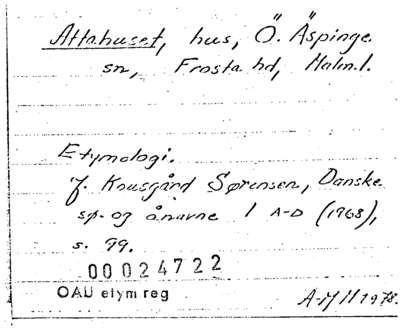 Attahuset, hus, Ö. Äspinge
sn, Frosta hd, Malm.l.
Etymologi.
Jf. Kousgård Sørensen, Danske
sø- og ånavne 1 A-D (1968),
s. 99.
00024722
OAU etym reg
1978.